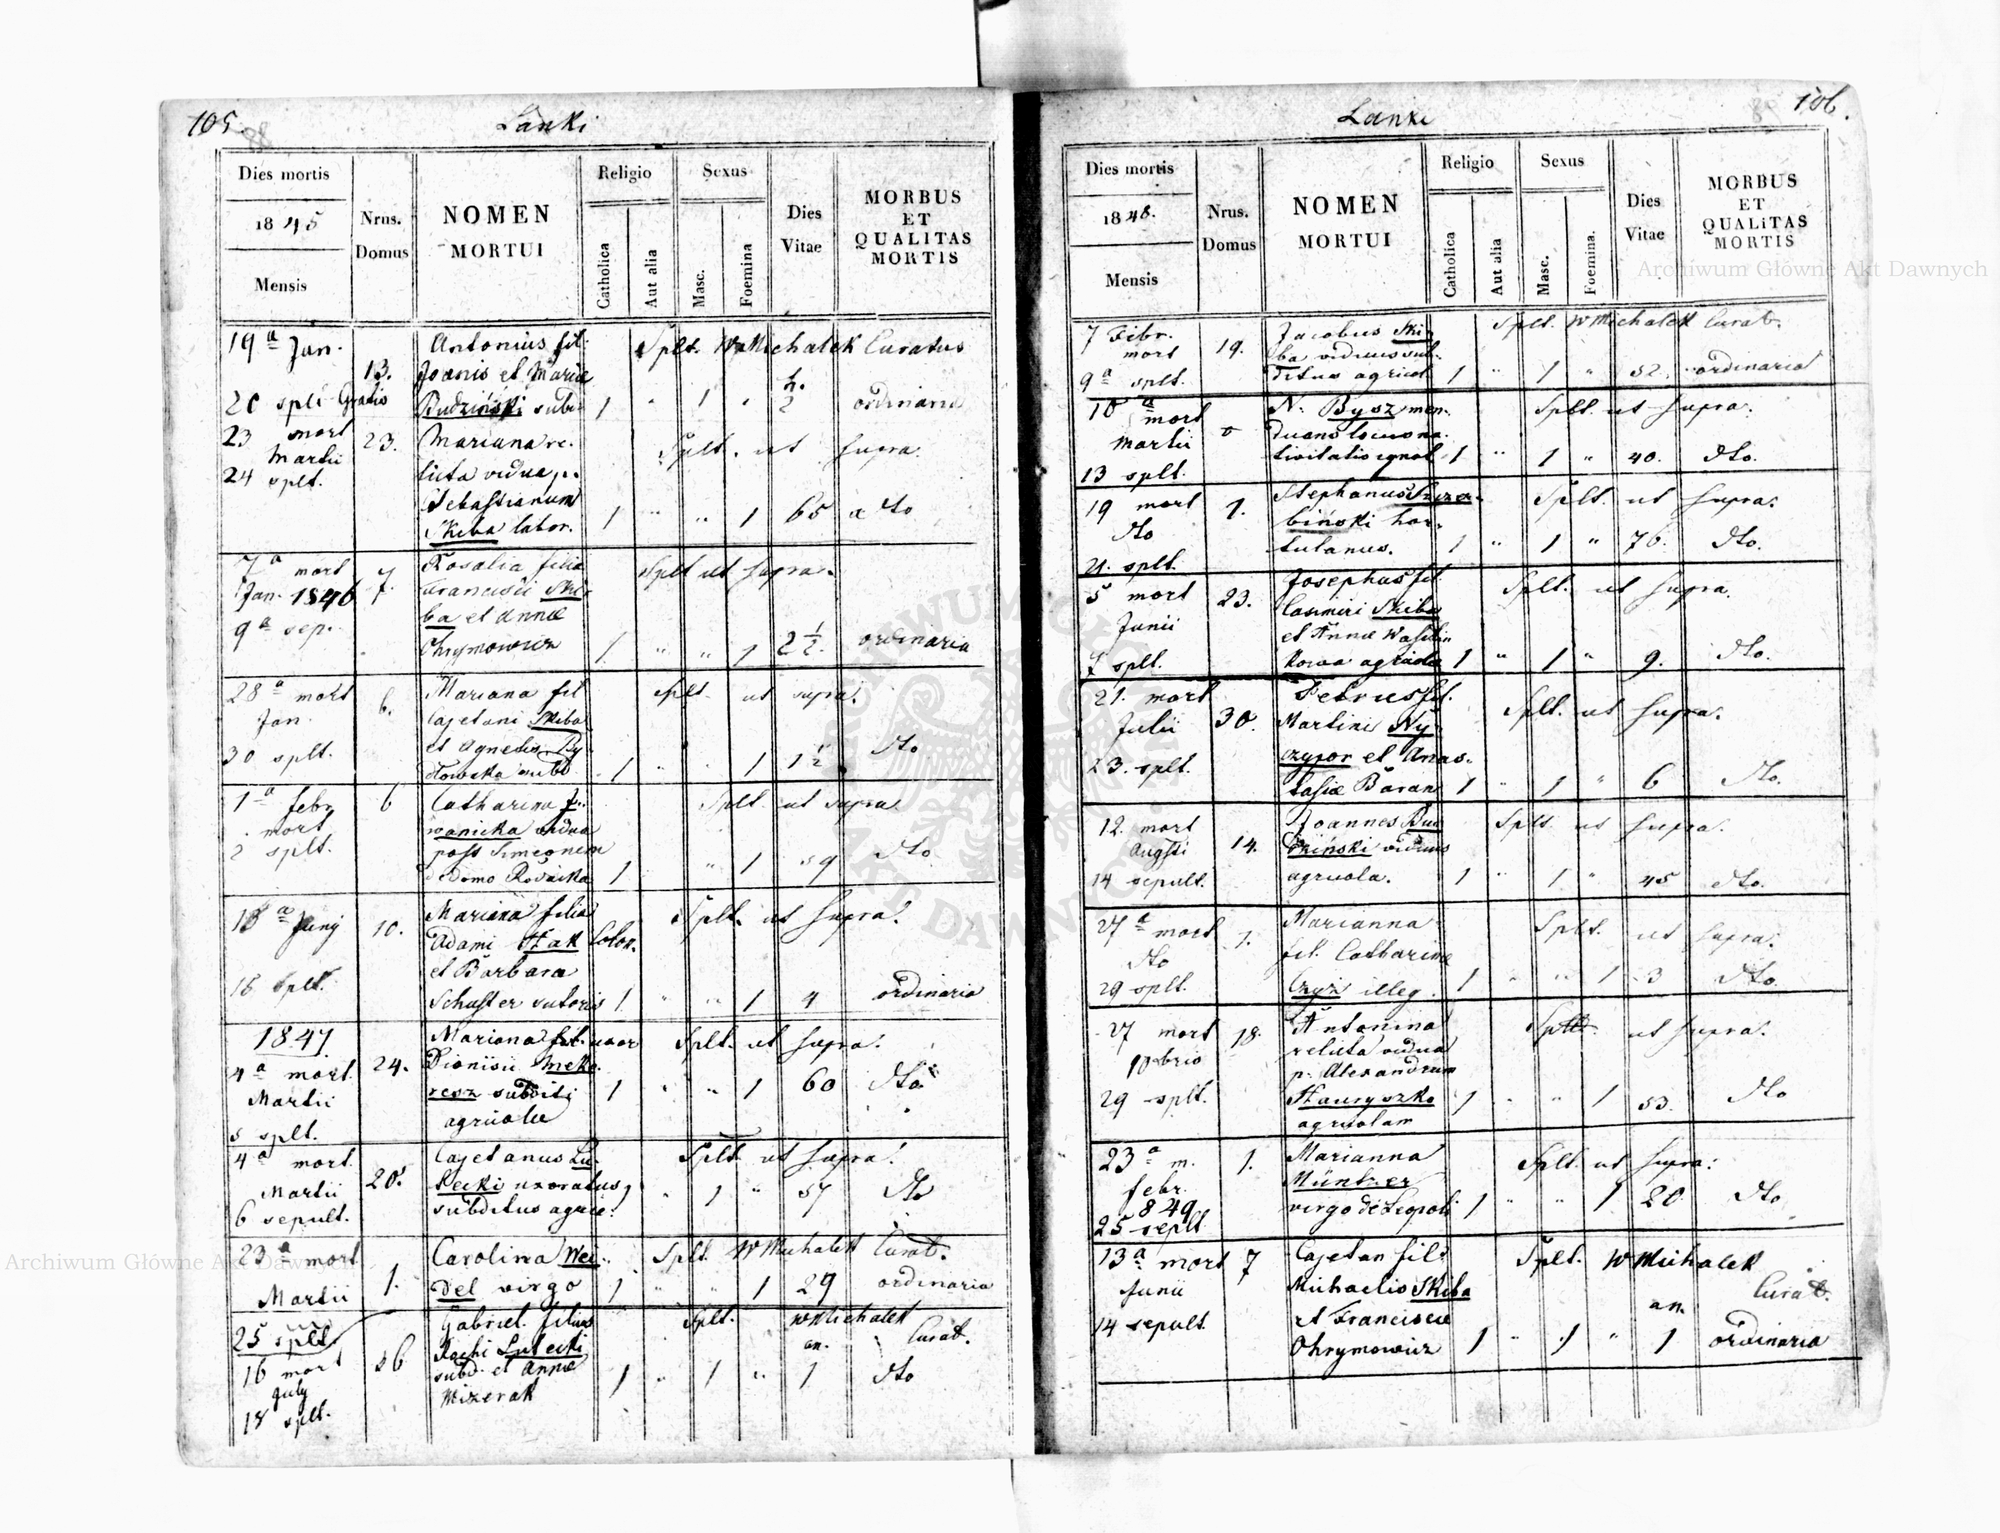 105.
Lanki
Dies mortis
1845
Mensis
Nrus.
Domus
NOMEN
MORTUI
Religio
Catholica
Aut alia
Sexus
Masc.
Foemina
Dies
Vitae
MORBUS
ET
QUALITAS
MORTIS
19 a Jan.
20 splt Gratis
13.
Antonius fil.
Joanis et Mariæ
Budziński subd
Splt. W Michalek Curatus
1 " 1 " 1/2 ordinaria
23 mort
Martii
24 splt.
23.
Mariana re.
licta vidua p.
Sebastianum
Skiba labor.
Splt. ut supra.
1 " " 1 65 dto
7 a mort
Jan. 1846
9 a sep.
7.
Rosalia filia
Francisci Ski-
ba et Annæ
Chrymowicz
Splt ut supra.
1 " " 1 2 1/2. ordinaria
28 a mort
Jan.
30 splt.
6.
Mariana fil
Cajetani Skiba
et Agnetis
subd.
Splt. ut supra.
1 " " 1 1 1/2 dto
1 a febr
mort
2 splt.
6
Catharina
wanicka vidua
post Simeonem
de domo
Splt. ut supra
1 " 1 59 dto
Juny
splt.
10.
Mariana filia
Adami Hak Colon.
et Barbara
Schuster sutoris
Splt. ut supra.
1 " " 1 4 ordinaria
1847
4 a mort.
Martii
5 splt.
24.
Mariana uxor
Dionisii Meke-
resz subditi
agricolæ
Splt. ut supra.
1 " " 1 60 dto
4 a mort.
Martii
6 sepult.
20.
Cajetanus Lu-
tecki uxoratus
subditus agric.
Splt. ut supra.
1 " 1 " 57 dto
23 a mort
Martii
25 splt
1.
Carolina Wei-
del virgo
Splt. W Michalek Curat.
1 " " 1 29 ordinaria
16 mort
July
18 splt.
26
Gabriel filius
Rochi Lutecki
subd. et Annæ
Mizerak
Splt. W Michalek
an. Curat.
1 " 1 " 1 dto
106.
Lanki
Dies mortis
1848.
Mensis
Nrus.
Domus
NOMEN
MORTUI
Religio
Catholica
Aut alia
Sexus
Masc.
Foemina.
Dies
Vitae
MORBUS
ET
QUALITAS
MORTIS
7 Febr.
mort
9 a splt.
19.
Jacobus Ski-
ba viduus sub-
ditus agricol
Splt. W Michalek Curat.
1 " 1 " 52. ordinaria
10 a mort
Martii
13 splt.
0
N. Bysz men-
dicans locus na-
tivitatis ignot
Splt. ut supra.
1 " 1 " 40. dto.
19 mort
dto
21. splt.
1.
Stephanus
biński hor-
tulanus.
Splt. ut supra.
1 " 1 " 76. dto.
5 mort
Junii
7 splt.
23.
Josephus fil.
Casimiri Skiba
et Annæ Wasilin
kowa agricola
Splt. ut supra.
1 " 1 " 9. dto.
21. mort
Julii
23. splt.
30.
Petrus fil.
Martini Ny-
czypor et Anas-
tasiæ Baran
Splt. ut supra.
1 " 1 " 6 dto.
12. mort
Augsti
14 sepult.
14.
Joannes Bud
ziński viduus
agricola.
Splt. ut supra.
1 " 1 " 45 dto.
27 a mort
dto
29 splt.
1.
Marianna
fil. Catharinæ
Czyż illeg.
Splt. ut supra.
1 " " 1 3 dto.
27 mort
10bris
29 splt.
18.
Antonina
relicta vidua
p. Alexandrum
Hauryszko
agricolam
Splt. ut supra.
1 " " 1 53. dto
23 a m.
febr.
849
25 seplt
1.
Marianna
Müntzer
virgo de Leopoli
Splt. ut supra.
1 " " 1 20 dto
13 a mort
Junii
14 sepult.
7
Cajetan fil.
Michaelis Skiba
et Franciscæ
Chrymowicz
Splt. W Michalek
Curat.
an.
1 " 1 " 1 ordinaria
Archiwum Główne Akt Dawnych
Archiwum Główne Akt Dawnych
ARCHIWUM GŁÓWNE AKT DAWNYCH